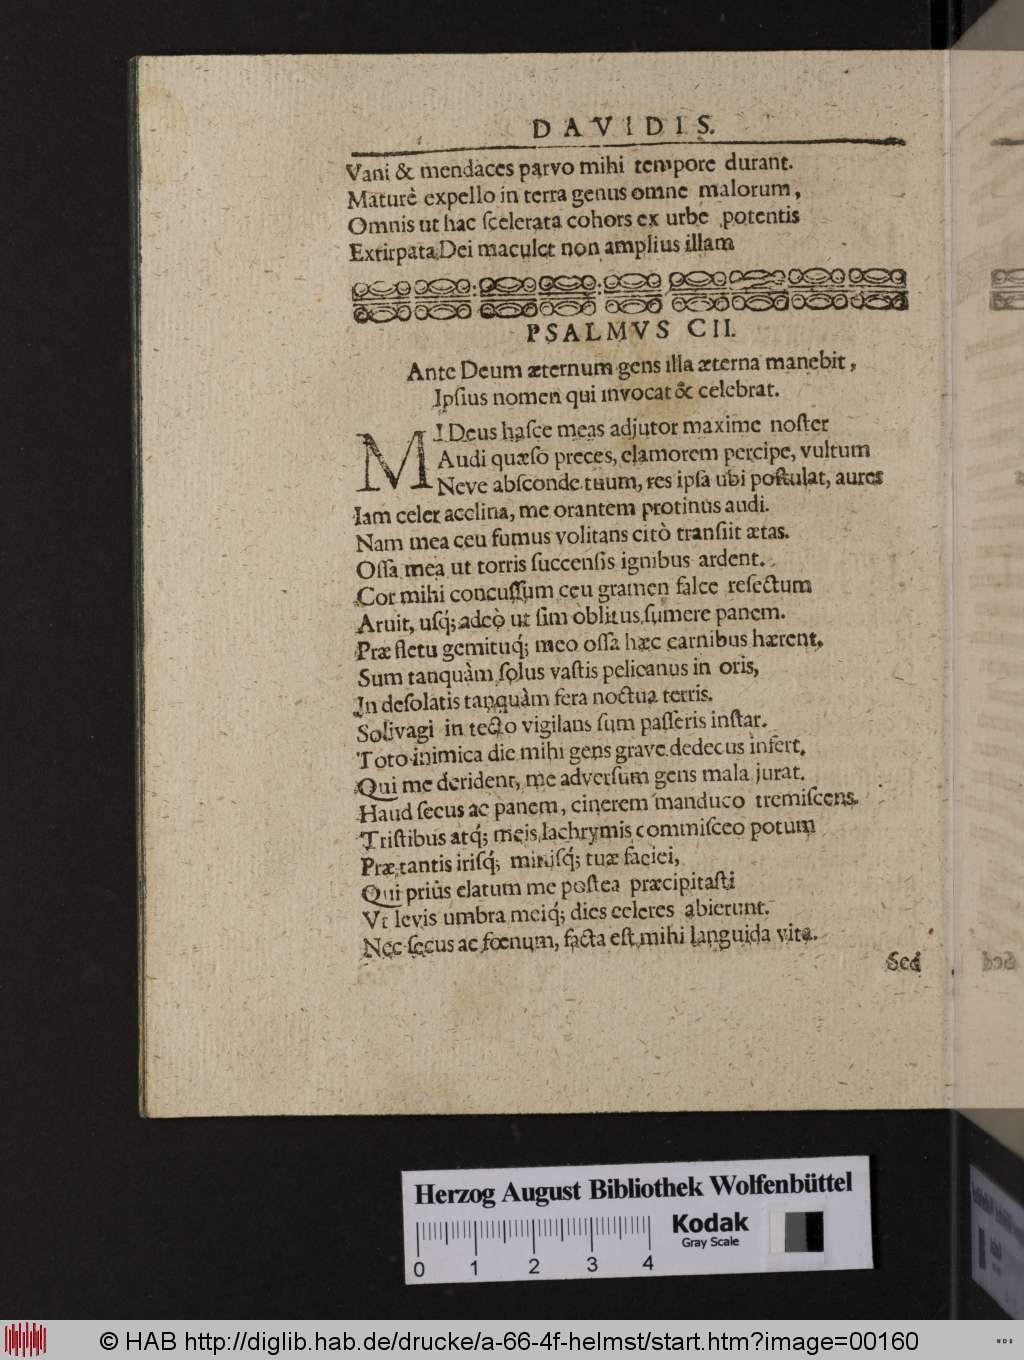 DAVIDIS.
Vani & mendaces parvo mihi tempore durant.
Maturè expello in terra genus omne malorum,
Omnis ut hac ſcelerata cohors ex urbe potentis
Extirpata Dei maculet non amplius illam
PSALMVS CII.
Ante Deum æternum gens illa æterna manebit,
Ipſius nomen qui invocat & celebrat.
MI Deus haſce meas adjutor maxime noſter
Audi quæſo preces, clamorem percipe, vultum
Neve abſconde tuum, res ipſa ubi poſtulat, aures
Iam celer acclina, me orantem protinus audi.
Nam mea ceu fumus volitans citò tranſiit ætas.
Oſſa mea ut torris ſuccenſis ignibus ardent.
Cor mihi concuſſum ceu gramen falce reſectum
Aruit, uſq́; adeò ut ſim oblitus ſumere panem.
Præ fletu gemituq́; meo oſſa hæc carnibus hærent,
Sum tanquàm ſolus vaſtis pelicanus in oris,
In deſolatis tanquàm fera noctua terris.
Solivagi in tecto vigilans ſum paſſeris inſtar.
Toto inimica die mihi gens grave dedecus infert,
Qui me derident, me adverſum gens mala jurat.
Haud ſecus ac panem, cinerem manduco tremiſcens,
Triſtibus atq́; meis lachrymis commiſceo potum
Præ tantis iriſq́; miniſq́; tuæ faciei,
Qui priùs elatum me poſtea præcipitaſti
Vt levis umbra meiq́; dies celeres abierunt.
Nec ſecus ac fœnum, facta eſt mihi languida vita.
Sed
Herzog August Bibliothek Wolfenbüttel
Kodak
Gray Scale
0 1 2 3 4
© HAB http://diglib.hab.de/drucke/a-66-4f-helmst/start.htm?image=00160